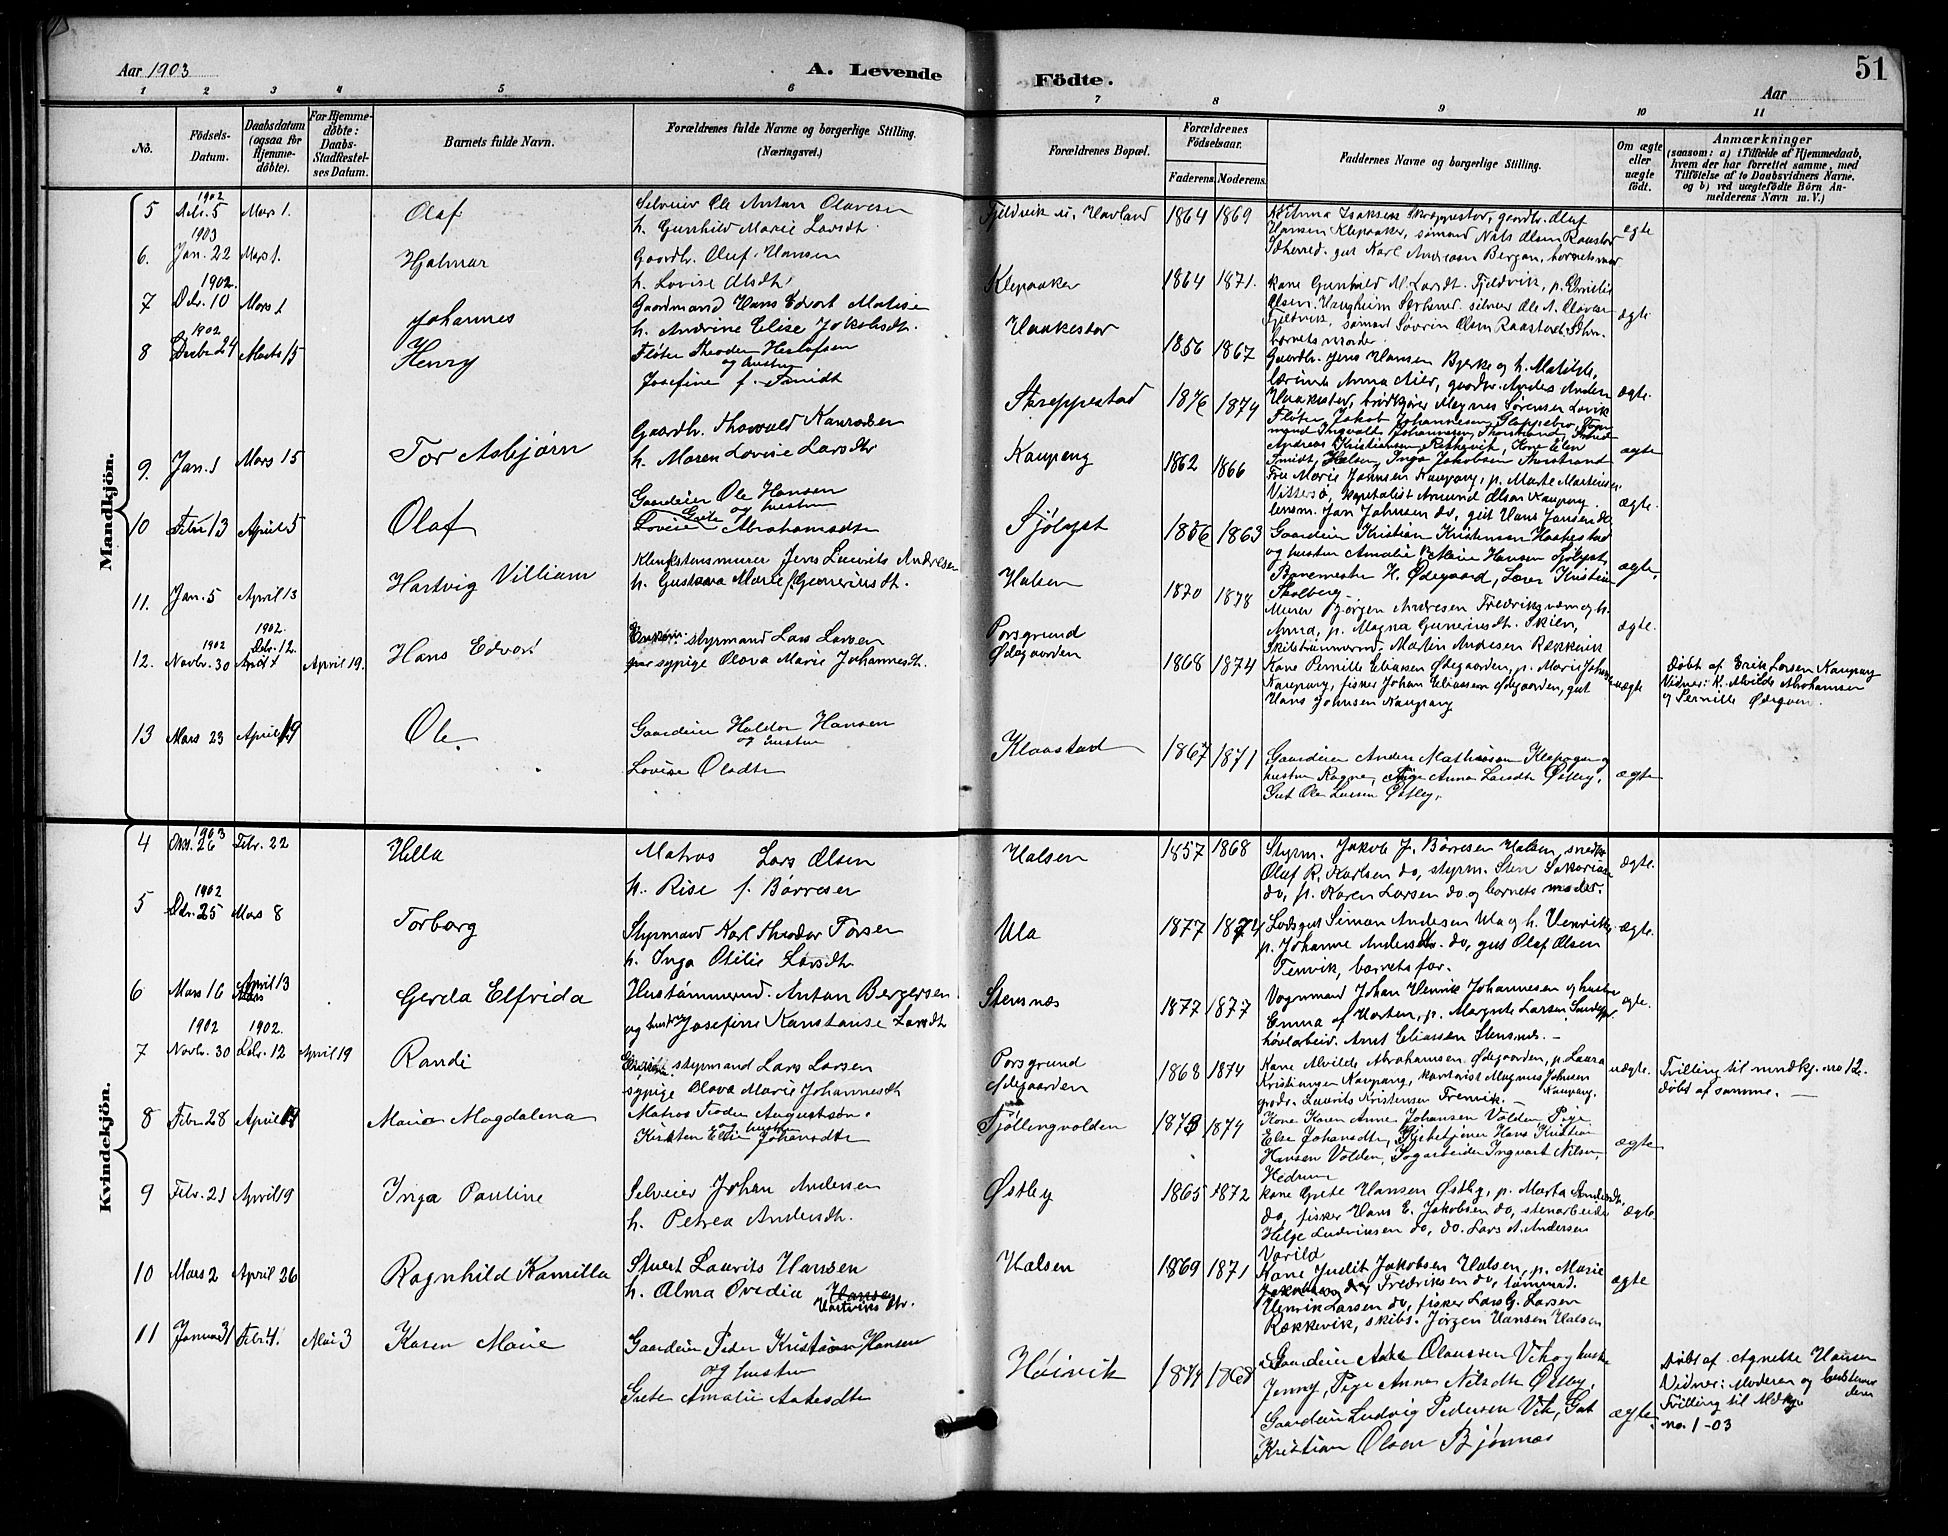 Aar 1903
A. Levende Födte.
51
Aar
1 2 3 4 5 6 7 8 9 10 11
No.
Födsels-Datum.
Daabsdatum (ogsaa for Hjemmedøbte).
For Hjemmedøbte: Daabs-Stadfestelses Datum.
Barnets fulde Navn.
Forældrenes fulde Navne og borgerlige Stilling. (Næringsvei.)
Forældrenes Bopæl.
Forældrenes Födselsaar.
Faderens. Moderens.
Faddernes Navne og borgerlige Stilling.
Om ægte eller uægte födt.
Anmærkninger
(saasom: a) i Tilfælde af Hjemmedaab, hvem der har forrettet samme, med Tilföielse af to Daabsvidners Navne, og b) ved uægtefödte Börn Anmelderens Navn m. V.)
Mandkjön.
5 1902 Dcbr. 5 Mars 1. Olaf
Selveier Ole Anton Olavesen
h. Gunhild Marie Larsdt.
Fjeldvik u. Havland 1864 1869
Hansen Klepaaker, sømand Nils Olsen Raastad
gut Karl Andersen Bergan, barnets mor
ægte
6. 1903 Jan. 22 Mars 1. Hjalmar
Gaardbr. Oluf Hansen
h. Lovise Olsdt.
Klepaaker 1864 1871.
Kone Gunhild M. Larsdt. Fjeldvik, p.
Fjeldvik, sømand Søvrin Olsen Raastad
barnets moder.
ægte
7 1902. Dcbr. 10 Mars 1 Johannes
Gaardmand Hans Edvart Matis
h. Andrine Elise Jakobsdt.
Haakestad 1856 1867
Gaardbr. Jens Hansen Bjerke og h. Matilde,
lærerinde Anna Meier, gaardbr. Anders Anders
Haakestad, Magnus Sørensen Lovik
ægte.
8 1902 Decbr 24 Marts 15 Henry
Fløter Theodor Herlofsen
og hustru
Josefine f. Smidt
Skreppestad 1876 1874
Fløter Jakob Johannesen Gloppebro,
mand Ingvald Johannesen Thorstrand,
Andreas Kristiansen Rekkevik, Kone Elen
Smidt, Halsen, Inga Jakobsen Thorstrand
ægte
9. Jan. 1 Mars 15 Tor Asbjørn
Gaardbr. Thorvald Konradsen
h. Maren Lovise Larsdtr
Kaupang 1862 1866
Fru Marie Johnsen Kaupang, p. Marte Martinsen
Vittersø, kapitalist Amund Olsen Kaupang
lensm. Jan Johnsen do, gut Hans Jansen do
ægte.
10 Febr 13 April 5 Olaf
Gaardeier Ole Hansen
og hustru
Lovise Grete Abrahamsdtr
Sjølyst 1856 1863
Gaardeier Kristian Kristensen Haakestad
og hustru Amalie p. Marie Hansen Sjølyst,
Banemester H. Ødegaard, Lærer Kristian
Stolberg
ægte.
11. Jan. 5 April 13 Hartvig Villiam
Klinkstensmurer Jens Lauvits Andresen
h. Gustava Marie f. Gunneriusdt.
Halsen 1870 1878
Murer Jørgen Andresen Fredriksværn og h.
Anna, p. Magna Guneriusdt. Skien,
Skibstømmermd. Martin Andresen Rækkevik
ægte.
12. 1902 Novbr. 30 1902. Dcbr. 12. April 19. Hans Edvart
Enkem. styrmand Lars Larsen
sypige Olava Marie Johannesdt.
Porsgrund
Ødegaarden
1868 1874
Kone Pernille Eliassen Ødegaarden, p. Marie Johnsen
Kaupang, fisker Johan Eliassen Ødegaarden, gut
Hans Johnsen Kaupang
uægte
Døbt af Erik Larsen Kaupang
Vidner: K. Alvilde Abrahamsen
og Pernille Ødegaarden.
13 Mars 23 April 19 Ole.
Gaardeier Haldor Hansen
og hustru
Lovise Olsdtr
Klaastad 1867 1871
Gaardeier Anders Mathiasen Klepager og
hustru Ragna, Pige Anna Larsdtr Østby,
Gut Ole Larsen Østby.
ægte
Kvindekjön.
4 1903 26 Febr. 22 Hella
Matros Lars Olsen
h. Rise f. Børresen
Halsen 1857 1868
Styrm. Jakob J. Børresen Halsen, snedk.
Olaf R. Karlsen do, styrm. Sten Sakariasen
do, p. Karen Larsen do og barnets moder.
ægte.
5 1902 Dcbr. 25 Mars 8 Torborg
Styrmand Karl Theodor Torsen
h. Inga Otilie Larsdtr.
Ula 1877 1874
Lodsgut Simon Andersen Ula og h. Henrikke,
p. Johanne Andersdt. do, gut Olaf Olsen
Fenvik, barnets far.
ægte.
6 Mars 16 April 13 Gerda Elfrida
Hustømmermd. Anton Bergersen
og hustru Josefine Konstanse Larsdt.
Stensnæs 1877 1877
Vognmand Johan Henrik Johannesen og hustru
Emma af Horten, p. Margit Larsen
Arnt Eliassen Stensnæs. –
ægte.
7 1902 Novbr. 30 1902. Dcbr. 12 April 19 Randi
Enkem. styrmand Lars Larsen
sypige Olava Marie Johannesdt.
Porsgrund
Ødegaarden
1868 1874
Kone Alvilde Abrahamsen Ødegaarden, p. Laura
Kristiansen Kaupang, kontorist Magnus Johnsen Kaupang,
grdbr. Lauvits Kristensen Fremvik. –
uægte.
Tvilling til mndkj. no 12.
døbt af samme. –
8 Febr 28 April 19 Maria Magdalena
Matros Teodor Augustsen
og hustru
Kirsten Elise Johansdtr
Tjøllingvolden 1873 1874
Kone Karen Anne Johansen Volden, Pige
Else Johansdtr, Hans Kristian
Hansen Volden, Sagarbeider Ingvart Nilsen,
Hedrum
ægte
9 Febr. 21 April 19 Inga Pauline
Selveier Johan Andersen
h. Petrea Andersdt.
Østby 1865 1872
Kone Grete Hansen Østby, p. Marta Andersdt.
do, fisker Hans E. Jakobsen do, stenarbeider
Helge Ludviksen do, do. Lars A. Andersen
Varild
ægte.
10 Mars 2 April 26 Ragnhild Kamilla
Stuert Lauvits Hansen
h. Alma Ovedia Hartvigs dtr.
Halsen 1869 1871
Kone Judit Jakobsen Halsen, p. Marie
Fredriksen do, tømmermd.
Henrik Larsen do, fisker Lars G. Larsen
Rækkevik, skibs. Jørgen Hansen Halsen
ægte
11 Januar 31 Febr. 4. Mai 3 Karen Marie
Gaardeier Peder Kristian Hansen
og hustru
Grete Amalie Aakesdtr
Høivik 1874 1868
Gaardeier Aake Olaussen Vik og hustru
Jenny, Pige Anna Nilsdtr Østby,
Gaardeier Ludvig Pedersen Vik, Gut
Kristian Olsen Bjønnes
ægte.
Døbt af Agnette Hansen
Vidner: Moderen og
Tvilling til Mdkj.
no. 1 – 03